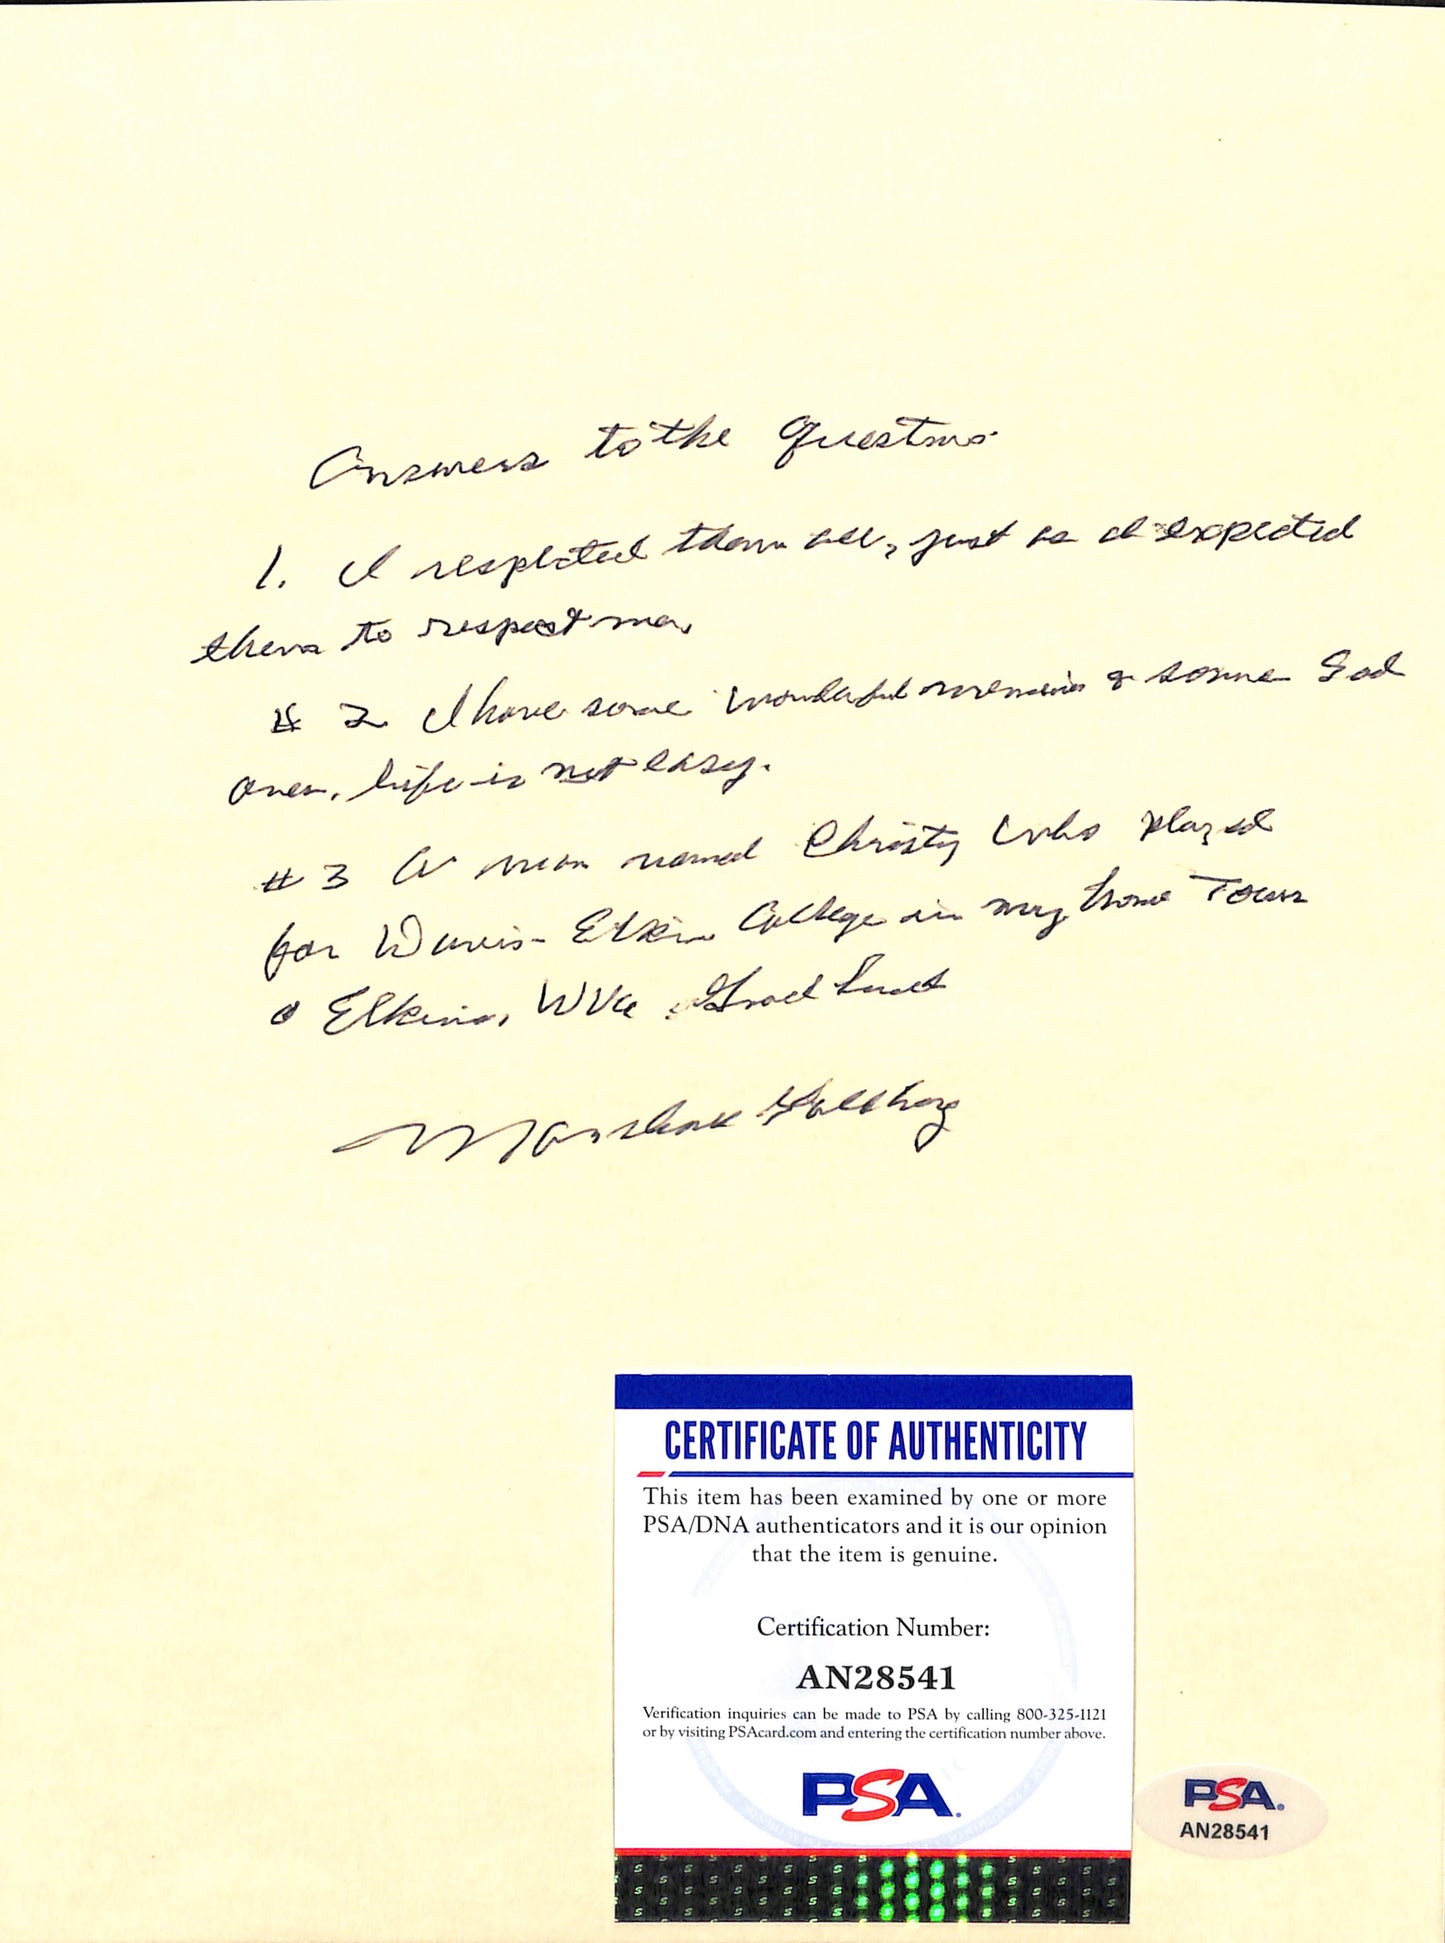 Answers to the Questions
1. I respected them all, just as I expected
them to respect me,
# 2 I have some wonderful memories & some Sad
ones, life is not easy.
#3 A man named Christy Who played
for Davis-Elkins College in my home Town
o Elkins, WVa, Good Luck
Marshall Goldberg
CERTIFICATE OF AUTHENTICITY
This item has been examined by one or more
PSA/DNA authenticators and it is our opinion
that the item is genuine.
Certification Number:
AN28541
Verification inquiries can be made to PSA by calling 800-325-1121
or by visiting PSAcard.com and entering the certification number above.
PSA.
PSA.
AN28541